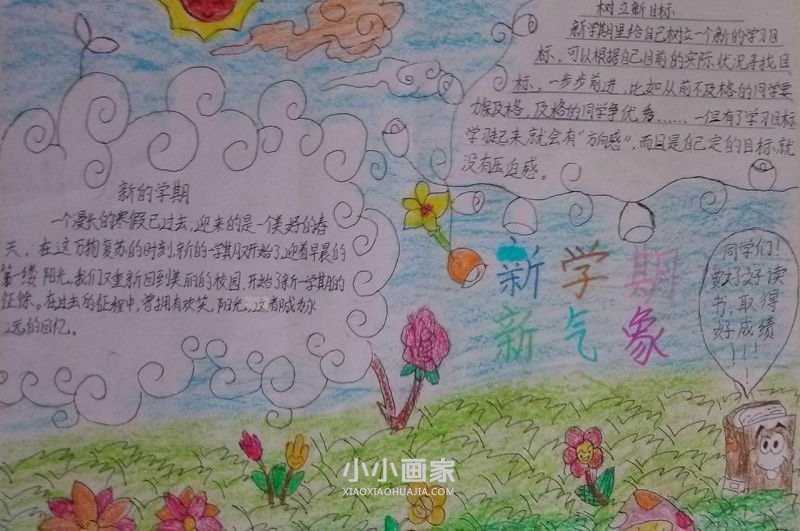 树立新目标
新学期里给自己树立一个新的学习目
标，可以根据自己目前的实际状况寻找目
标，一步步前进，比如从前不及格的同学要
力保及格，及格的同学争优秀……一但有了学习目标
学习起来就会有"方向感"，而且是自己定的目标，就
没有压迫感。
新的学期
一个漫长的寒假已过去，迎来的是一个美好的春
天，在这万物复苏的时刻，新的一学期又开始了，迎着早晨的
第一缕阳光，我们又重新回到美丽的校园，开始了新一学期的
征途。在过去的征程中，曾拥有欢笑，阳光，这都成为永
远的回忆。
新学期
新气象
同学们！
要好好读
书，取得
好成绩
！！！
小小画家
XIAOXIAOHUAJIA.COM